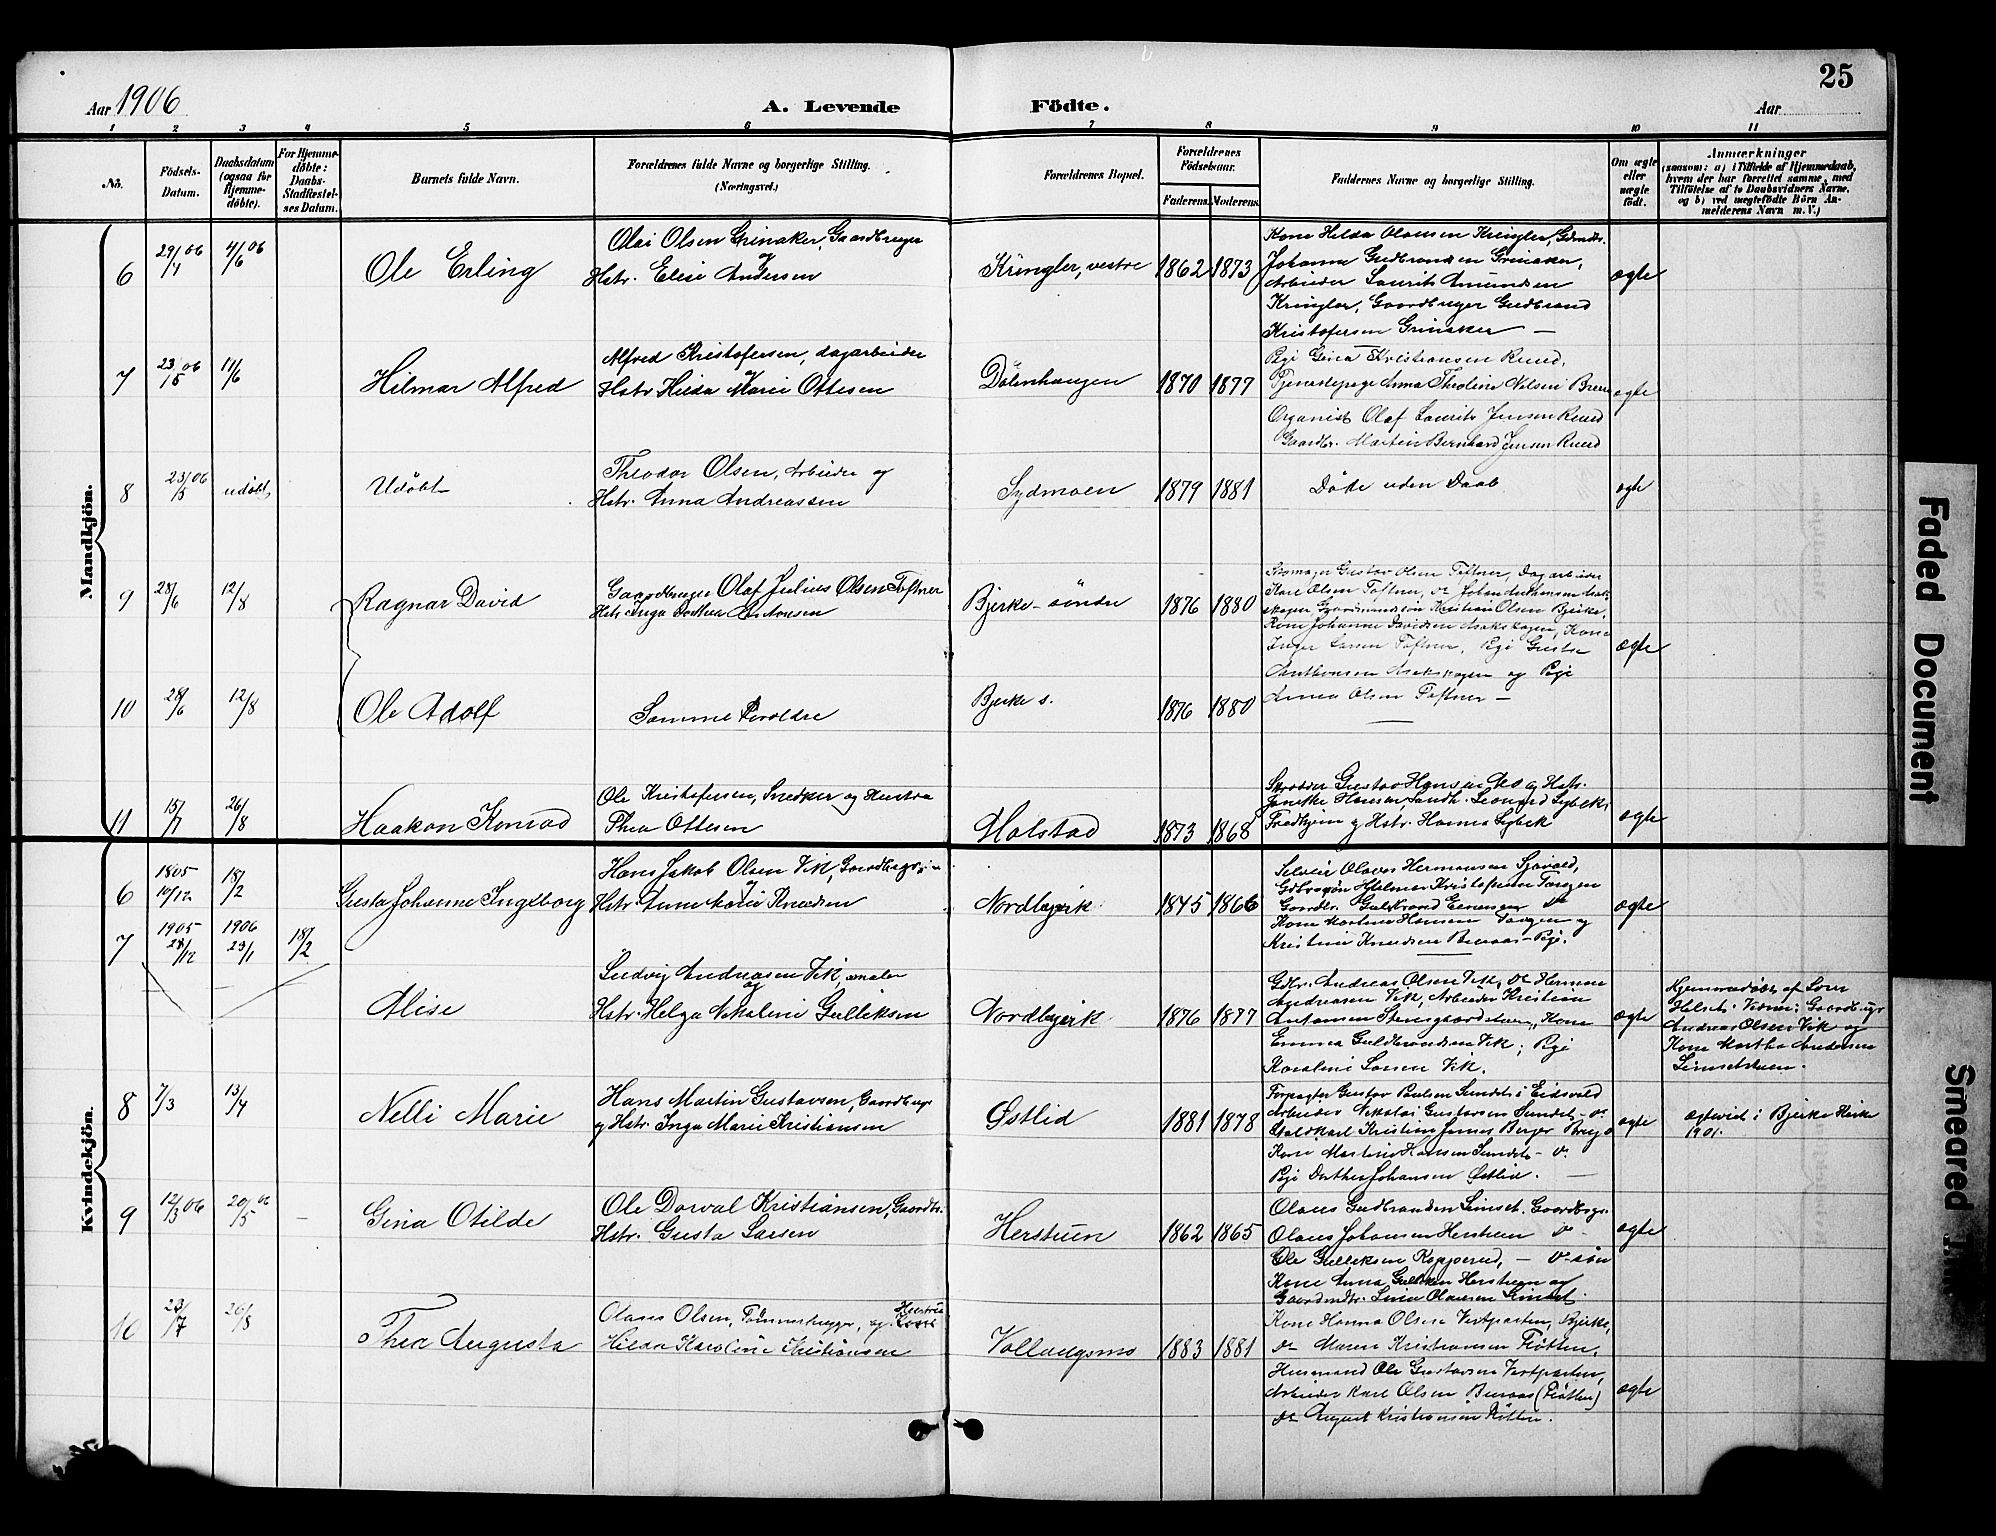 25
Aar 1906
A. Levende Födte.
Aar
1 2 3 4 5 6 7 8 9 10 11
No.
Födsels-Datum.
Daabsdatum (ogsaa for Hjemmedöbte).
For Hjemmedöbte: Daabs-Stadfæstelses Datum.
Barnets fulde Navn.
Forældrenes fulde Navne og borgerlige Stilling.
(Næringsvei.)
Forældrenes Bopæl.
Forældrenes Födselsaar.
Faderens. Moderens.
Faddernes Navne og borgerlige Stilling.
Om ægte eller uægte födt.
Anmærkninger
(saasom: a) i Tilfælde af Hjemmedaab, hvem der har forrettet samme, med Tilföielse af to Daabsvidners Navne, og b) ved uægtefödte Börn Anmelderens Navn m. V.)
Mandkjön.
6 29/4 06 4/6 06 Ole Erling
Olai Olsen Grinaker, Gaardbruger
og
Hstr. Elise Andersen
Kringler, vestre 1862 1873
Kone Hilda Olausen Kringler, Gdmdtr.
Johanne Gudbrandsen Grinaker,
Arbeider Laurits Amundsen
Kringler, Gaardbruger Gudbrand
Kristofersen Grinaker —
ægte
7 23/5 06 4/6 Hilmar Alfred
Alfred Kristofersen, dagarbeider
og
Hstr Hilda Marie Ottesen
Dölenhaugen 1870 1877
Pige Gina Kristiansen Ruud,
Tjenestepige Anna Theoline Nilsen
Organist Olaf Laurits Jensen Ruud
Gaardbr. Martin Bernhard Jensen Ruud
ægte
8 23/5 06 udöbt Udöbt
Theodor Olsen, Arbeider og
Hstr. Anna Andreassen
Sydmoen 1879 1881
Döde uden Daab
ægte
9 28/6 12/8 Ragnar David
Gaardbruger Olaf Julius Olsen Toftner
Hstr Inga Dorthea Antonsen
Bjerke - söndre 1876 1880
Skomager Gustav Olsen Toftner, Dagarbeider
Karl Olsen Toftner, do Johan
Gaardmandssön Kristian Olsen Bjerke,
Kone Johanne Davidsen Asakskogen, Kone
Inger Larsen Toftner, Pige Gusta
Anthonsen Asakskogen og Pige
Anna Olsen Toftner —
ægte
10 28/6 12/8 Ole Adolf
Samme Foreldre
Bjerke s. 1876 1880
11 15/7 26/8 Haakon Konrad
Ole Kristofersen, Snedker og Hustru
Thea Ottesen
Holstad 1873 1868
Skrædder Gustav Hansen Mo og Hstr.
Janette Hansen, Landh. Leonard Lybek,
Fredheim og Hstr. Hanna Lybek
ægte
Kvindekjön.
6 1905 10/12 18/2 Gusta Johanne Ingeborg
Hans Jakob Olsen Vik, Gaardbruger
og
Hstr. Anne Marie Knudsen
Nordbyeik 1845 1866
Selveier Olaves Hermansen Sjøvold,
Gdbrssön Hilmar Kristofersen Tangen
Gaardbr. Guldbrand do
Kone Martine Hansen Tangen og
Kristine Knudsen Buraas - Pige.
ægte
7 1905 28/12 1906 23/1 18/2
Alise
Ludvig Andreasen Vik, maler
og
Hstr. Helga Nikoline Gulliksen
Nordbyeik 1876 1877
Gdbr. Andreas Olsen Vik, do Herman
Andreasen Vik, Arbeider Kristian
Antonsen Stensgaardstuen, Kone
Emma Guldbrandsen Vik, Pige
Karoline Larsen Vik.
ægte
Hjemmedöbt af Lars
Helset. Vidner: Gaardbrugr
Andreas Olsen Vik og
Kone Martha Andersen
Linnestuen.
8 7/3 13/4 Nelli Marie
Hans Martin Gustavsen, Gaardbrugr
og Hstr. Inga Marie Kristiansen
Østlid 1881 1878
Forpagter Gustav Paulsen Sundet i Eidsvold
Arbeider Nikolai Gustavsen Sundet - do
Staldkarl Kristian Jensen Berger
Kone Martine Hansen Sundet - do
Pige Dorthea Johansen Østlid. —
ægte
egteviet i Bjerke Kirke
1901.
9 12/3 06 20/5 06 – Gina Otilde
Ole Dorval Kristiansen, Gaardbr.
Hstr. Gusta Larsen
Herstuen 1862 1865
Olaus Gudbrandsen Linset. Gaardbrgr.
Olaus Johansen Herstuen do -
Ole Gulliksen Kopperud, - do sön
Kone Anna Gulliksen Herstuen og
Gaardmdtr. Lina Olausen Linset.
ægte
10 23/7 26/8 Thea Augusta
Olaus Olsen, Tömmerhugger, og Hustru
Hilda Karoline Kristiansen
Vollaugsmo 1883 1881
Kone Hanna Olsen Vestparten, Bjerke,
do Maren Kristiansen Fløtten,
Husmand Ole Gustavsen Vestparten,
Arbeider Karl Olsen Buraas (Fløtten)
do August Kristiansen Fløtten.
ægte
Faded Document
Smeared